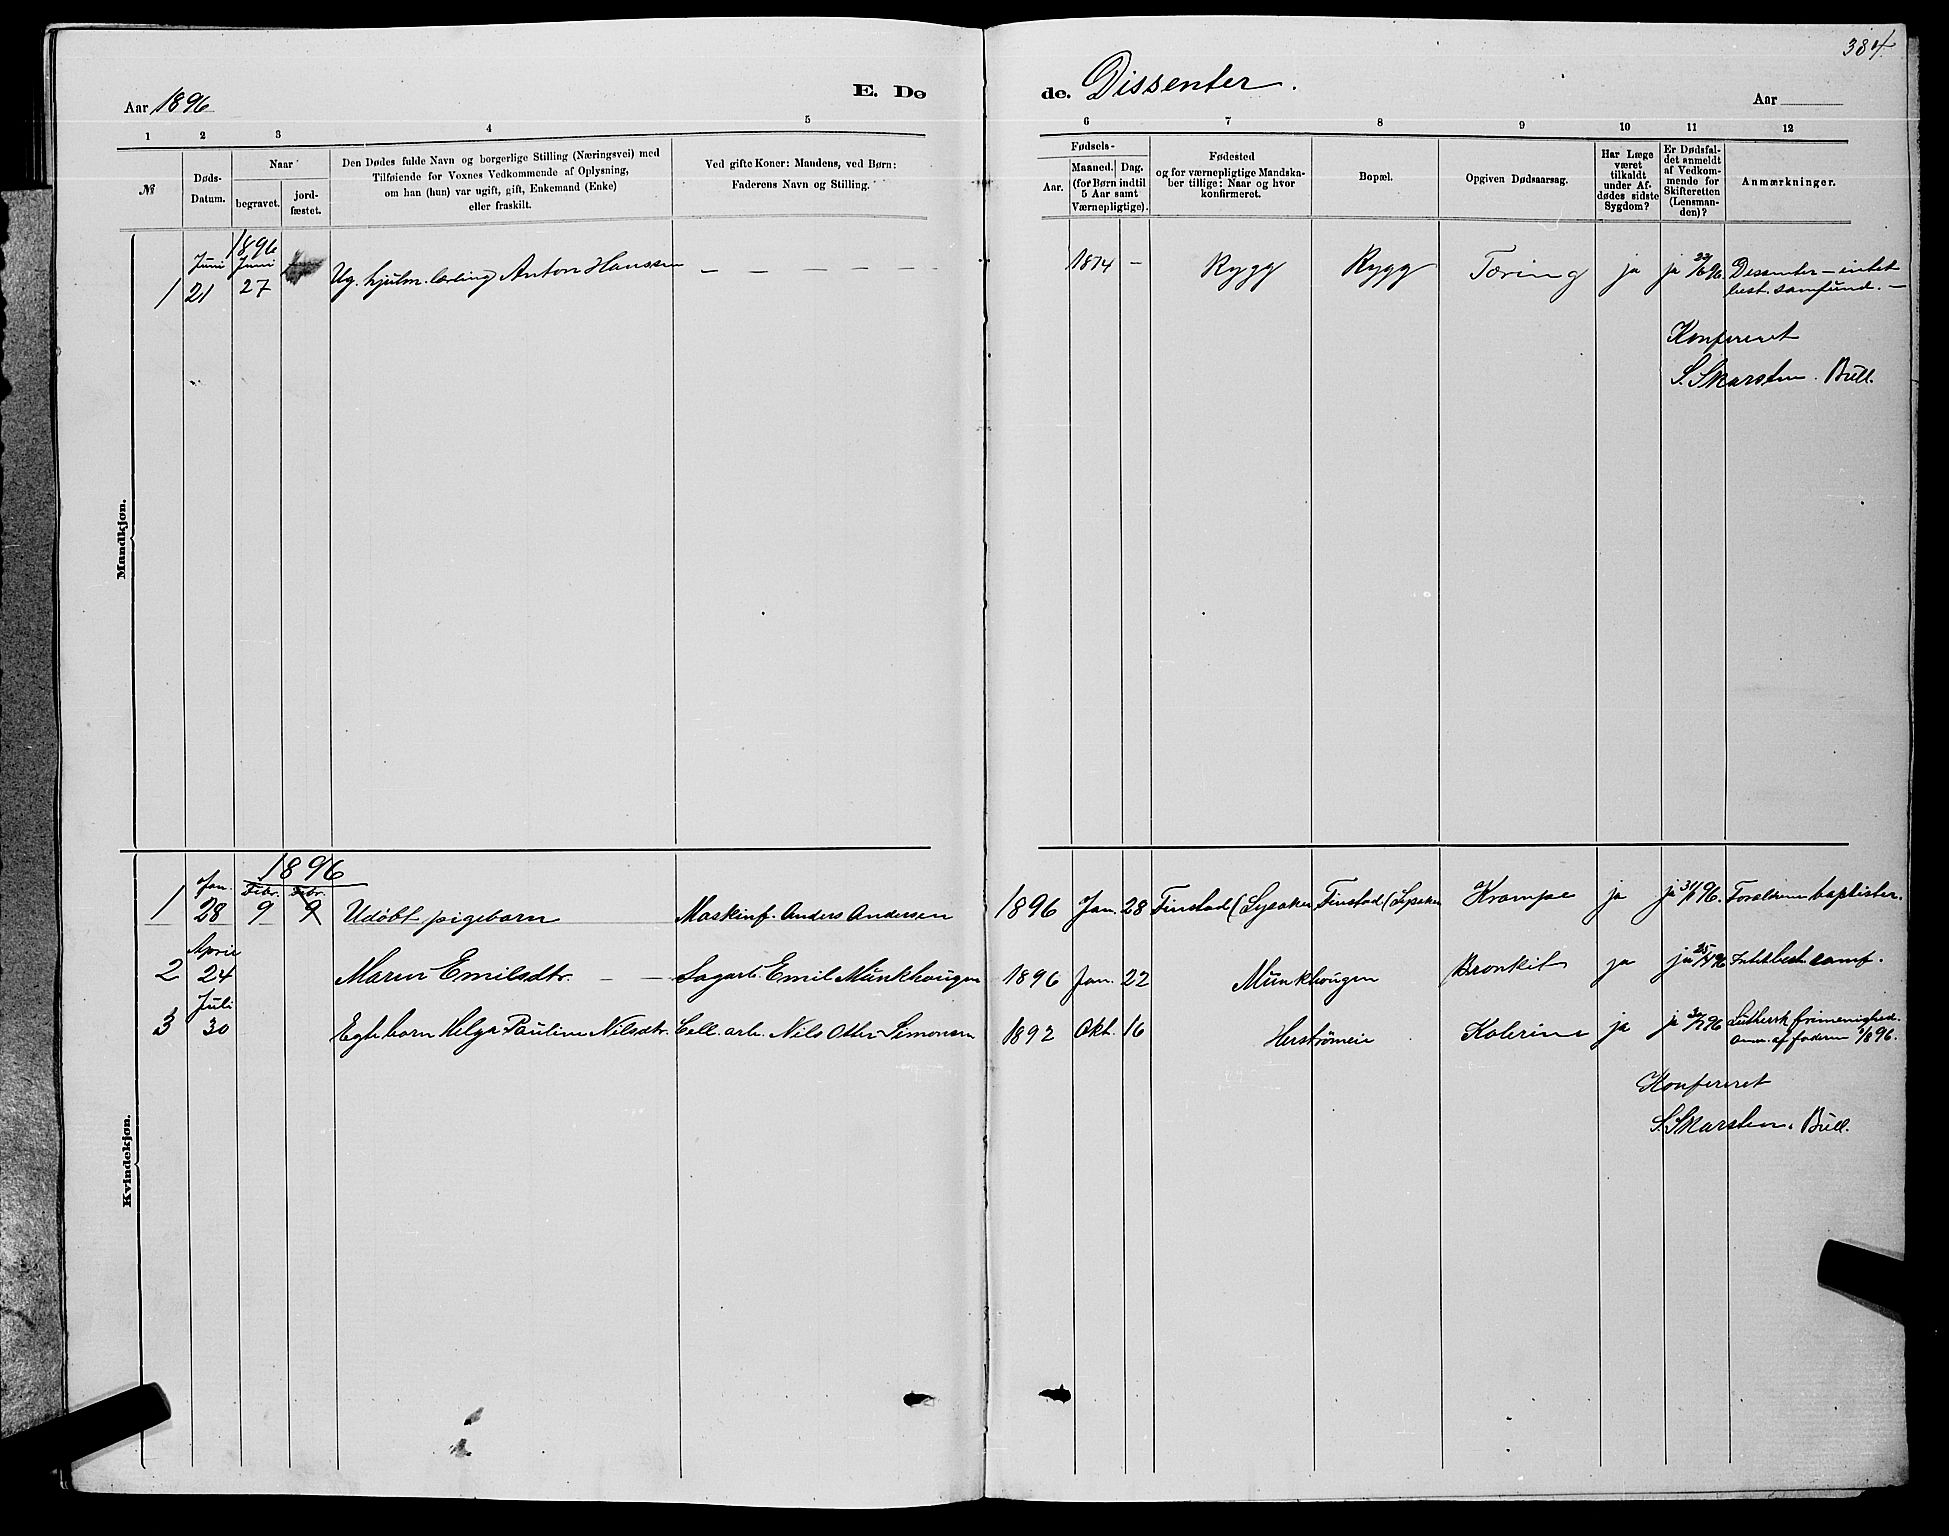 384
Aar 1896
E. Dø
de. Dissenter.
Aar
1 2 3 4 5
6 7 8 9 10 11 12
№
Døds-
Datum.
Naar
begravet.
jord-
fæstet.
Den Dødes fulde Navn og borgerlige Stilling (Næringsvei) med
Tilføiende for Voxnes Vedkommende af Oplysning,
om han (hun) var ugift, gift, Enkemand (Enke)
eller fraskilt.
Ved gifte Koner: Mandens, ved Børn:
Faderens Navn og Stilling.
Fødsels-
Aar.
Maaned. Dag.
(for Børn indtil
5 Aar samt
Værnepligtige).
Fødested
og for værnepligtige Mandska-
ber tillige: Naar og hvor
konfirmeret.
Bopæl.
Opgiven Dødsaarsag.
Har Læge
været
tilkaldt
under Af-
dødes sidste
Sygdom?
Er Dødsfal-
det anmeldt
af Vedkom-
mende for
Skifteretten
(Lensman-
den)?
Anmærkninger.
Mandkjøn.
1896
Juni Juni
1 21 27 Ug. hjulm. lærling Anton Hanssen — — — — — 1874 — Rygg Rygg Tæring ja ja 22/6 96. Dissenter — intet
best. samfund. —
Konfereret
S. Skarsten. Bull.
Kvindekjøn.
1896
Jan. Febr. Febr.
1 28 9 9 Udøbt pigebarn Maskinf. Anders Andersen 1896 Jan. 28 Finstad (Lysaker Finstad (Lysaker Krampe ja ja 31/1 96. Forældrene baptister.
April
2 24 Maren Emilsdtr. — — Sagarb. Emil Munkhaugen 1896 Jan. 22 Munkhaugen Bronkit ja ja 25/4 96 Intet best. samf.
Juli
3 30 Egtebarn Helga Pauline Nilsdtr. Cell. arb. Nils Otter Simonsen 1892 Okt. 16 Herstrømeie Kolerine ja ja 30/7 96 Luthersk frimenighed.
Anm. af faderen 1/8 96.
Konfereret
S. Skarsten. Bull.